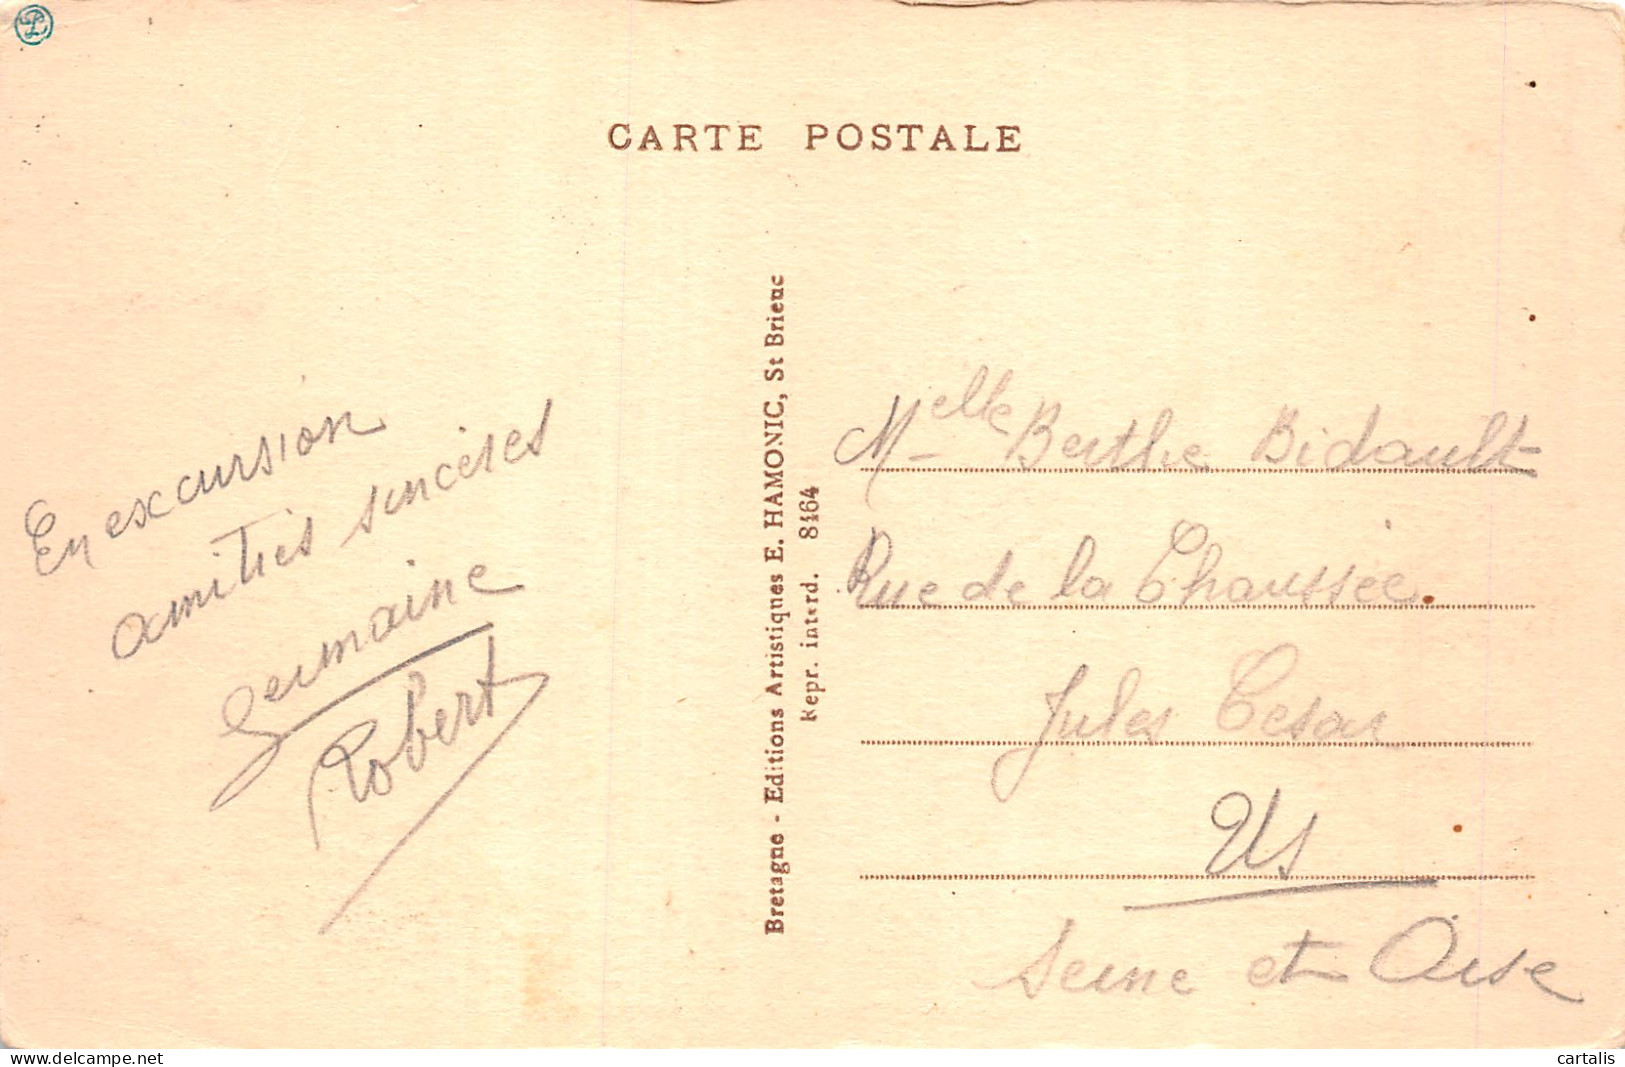 CARTE POSTALE
En excursion
amitiés sincères
Germaine
Robert
Bretagne - Editions Artistiques E. HAMONIC, St Brieuc
Repr. interd. 8464
Melle Berthe Bidault
Rue de la Chaussée.
Jules Cesar
Us
Seine et Oise
delcampe.net
cartalis